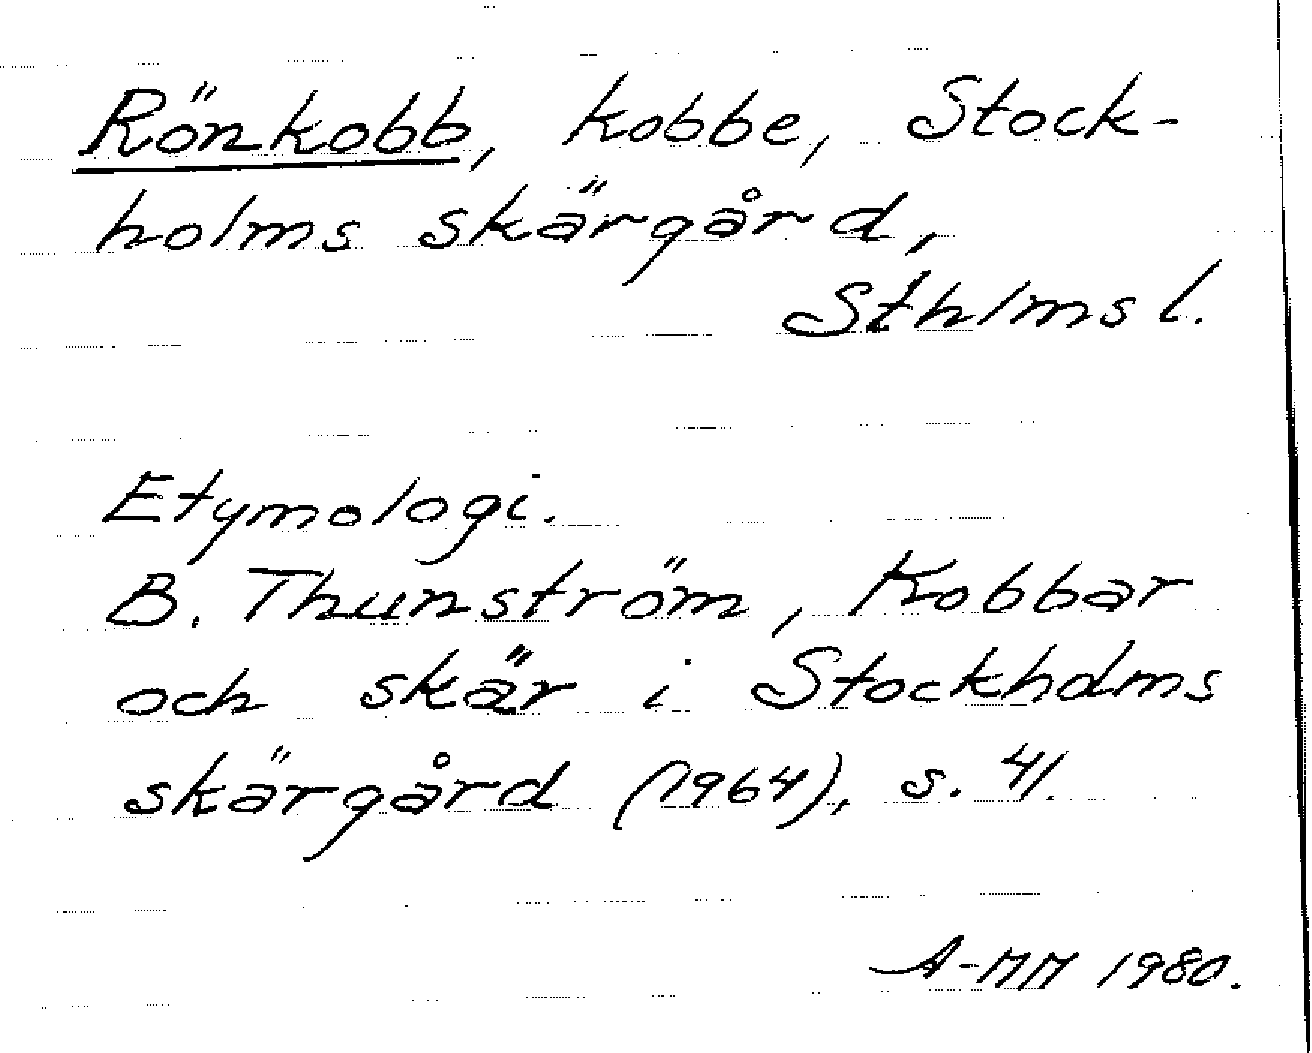 Rönkobb, kobbe, Stock-
holms skärgård,
Sthlms l.
Etymologi.
B. Thunström, Kobbar
och skär i Stockholms
skärgård (1964), s. 41.
A-MM 1980.